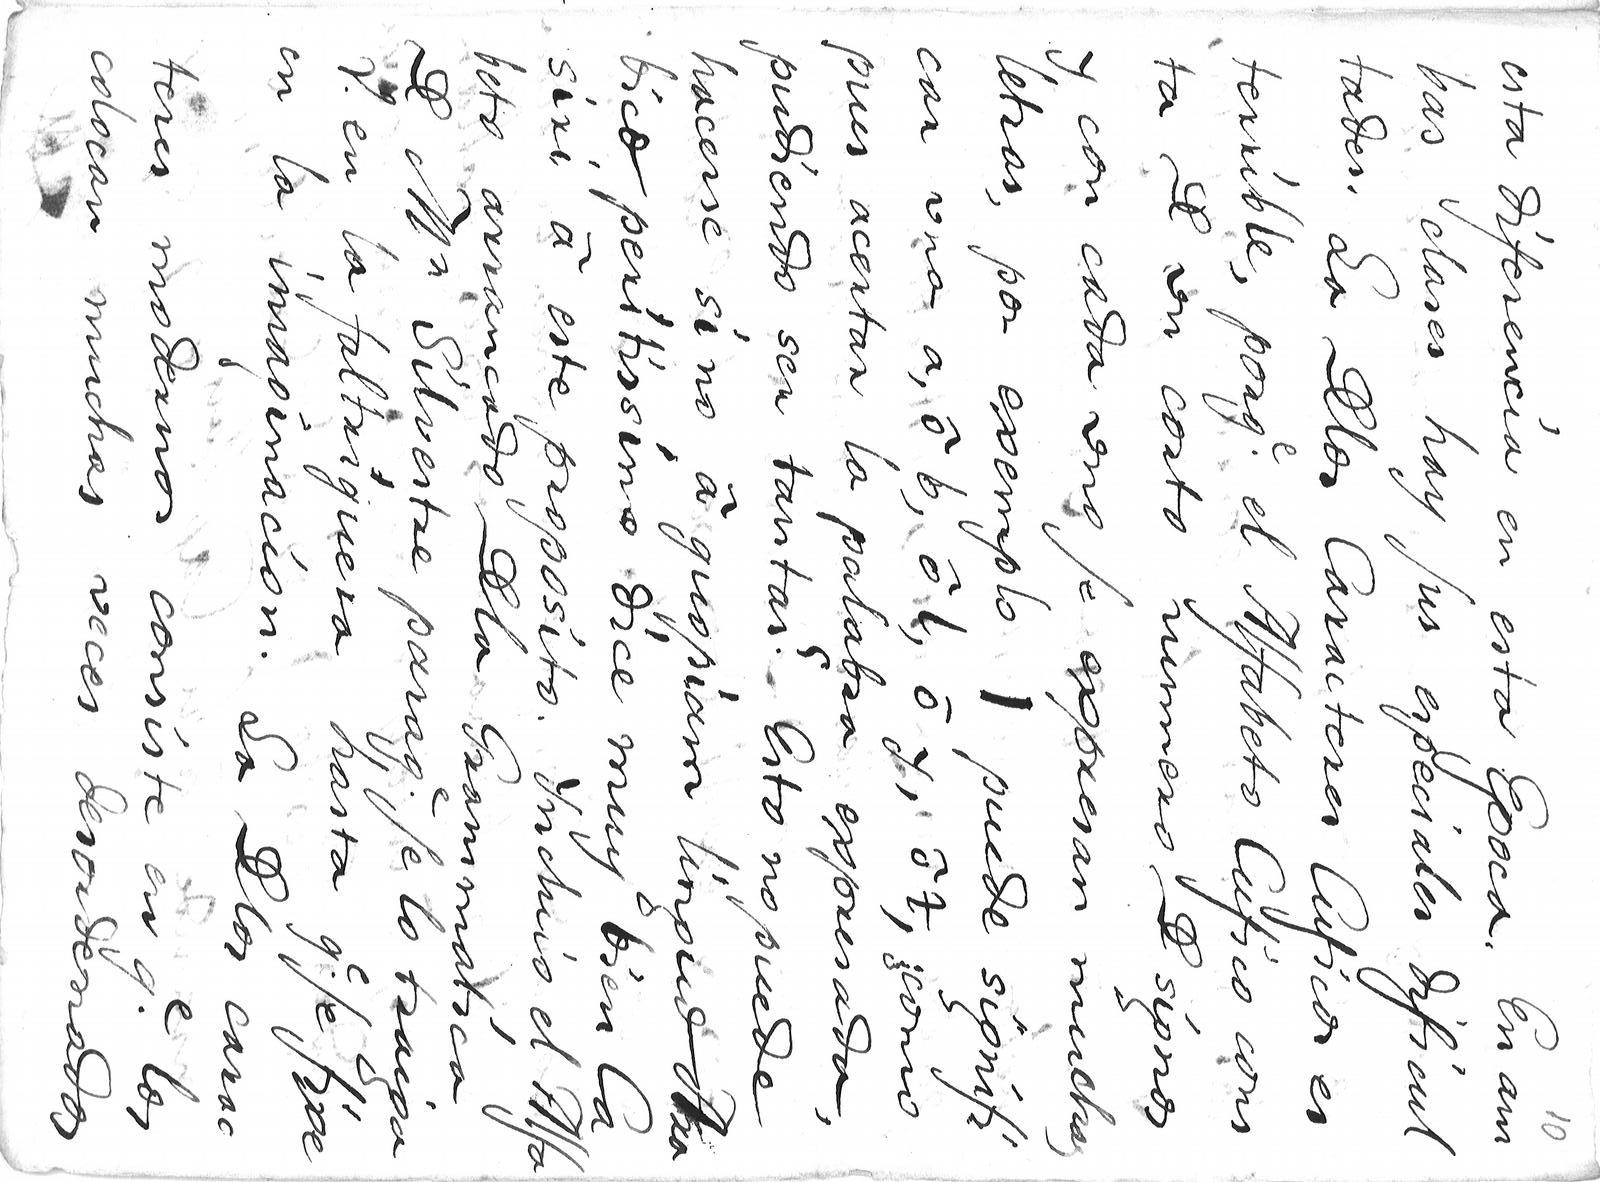 10
esta diferencia en esta Epoca. En am
bas clases hay sus especiales dificul
tades. La Dlos Caracteres Cuficos es
terrible, porq.e el Alfabeto Cufico cons
ta D un corto numero D signos
y con cada uno se expresan muchas
letras, por exemplo ı puede signifi
car una a, ô b, ô l, ô y, ô z, como
pues acertar la palabra expresada,
pudiendo ser tantas? Esto no puede
hacerse sino â quopiam linguae Ara
bicae peritissimo dice muy bien Ca
siri â este proposito. Incluio el Alfa
beto arrancado Dla Grammatica
D Mr Silvestre paraq.e se lo traiga
V. en la faltriquera hasta q.e se fixe
en la imaginacion. La Dlos carac
teres modernos consiste en q.e los
colocan muchas veces desordenados